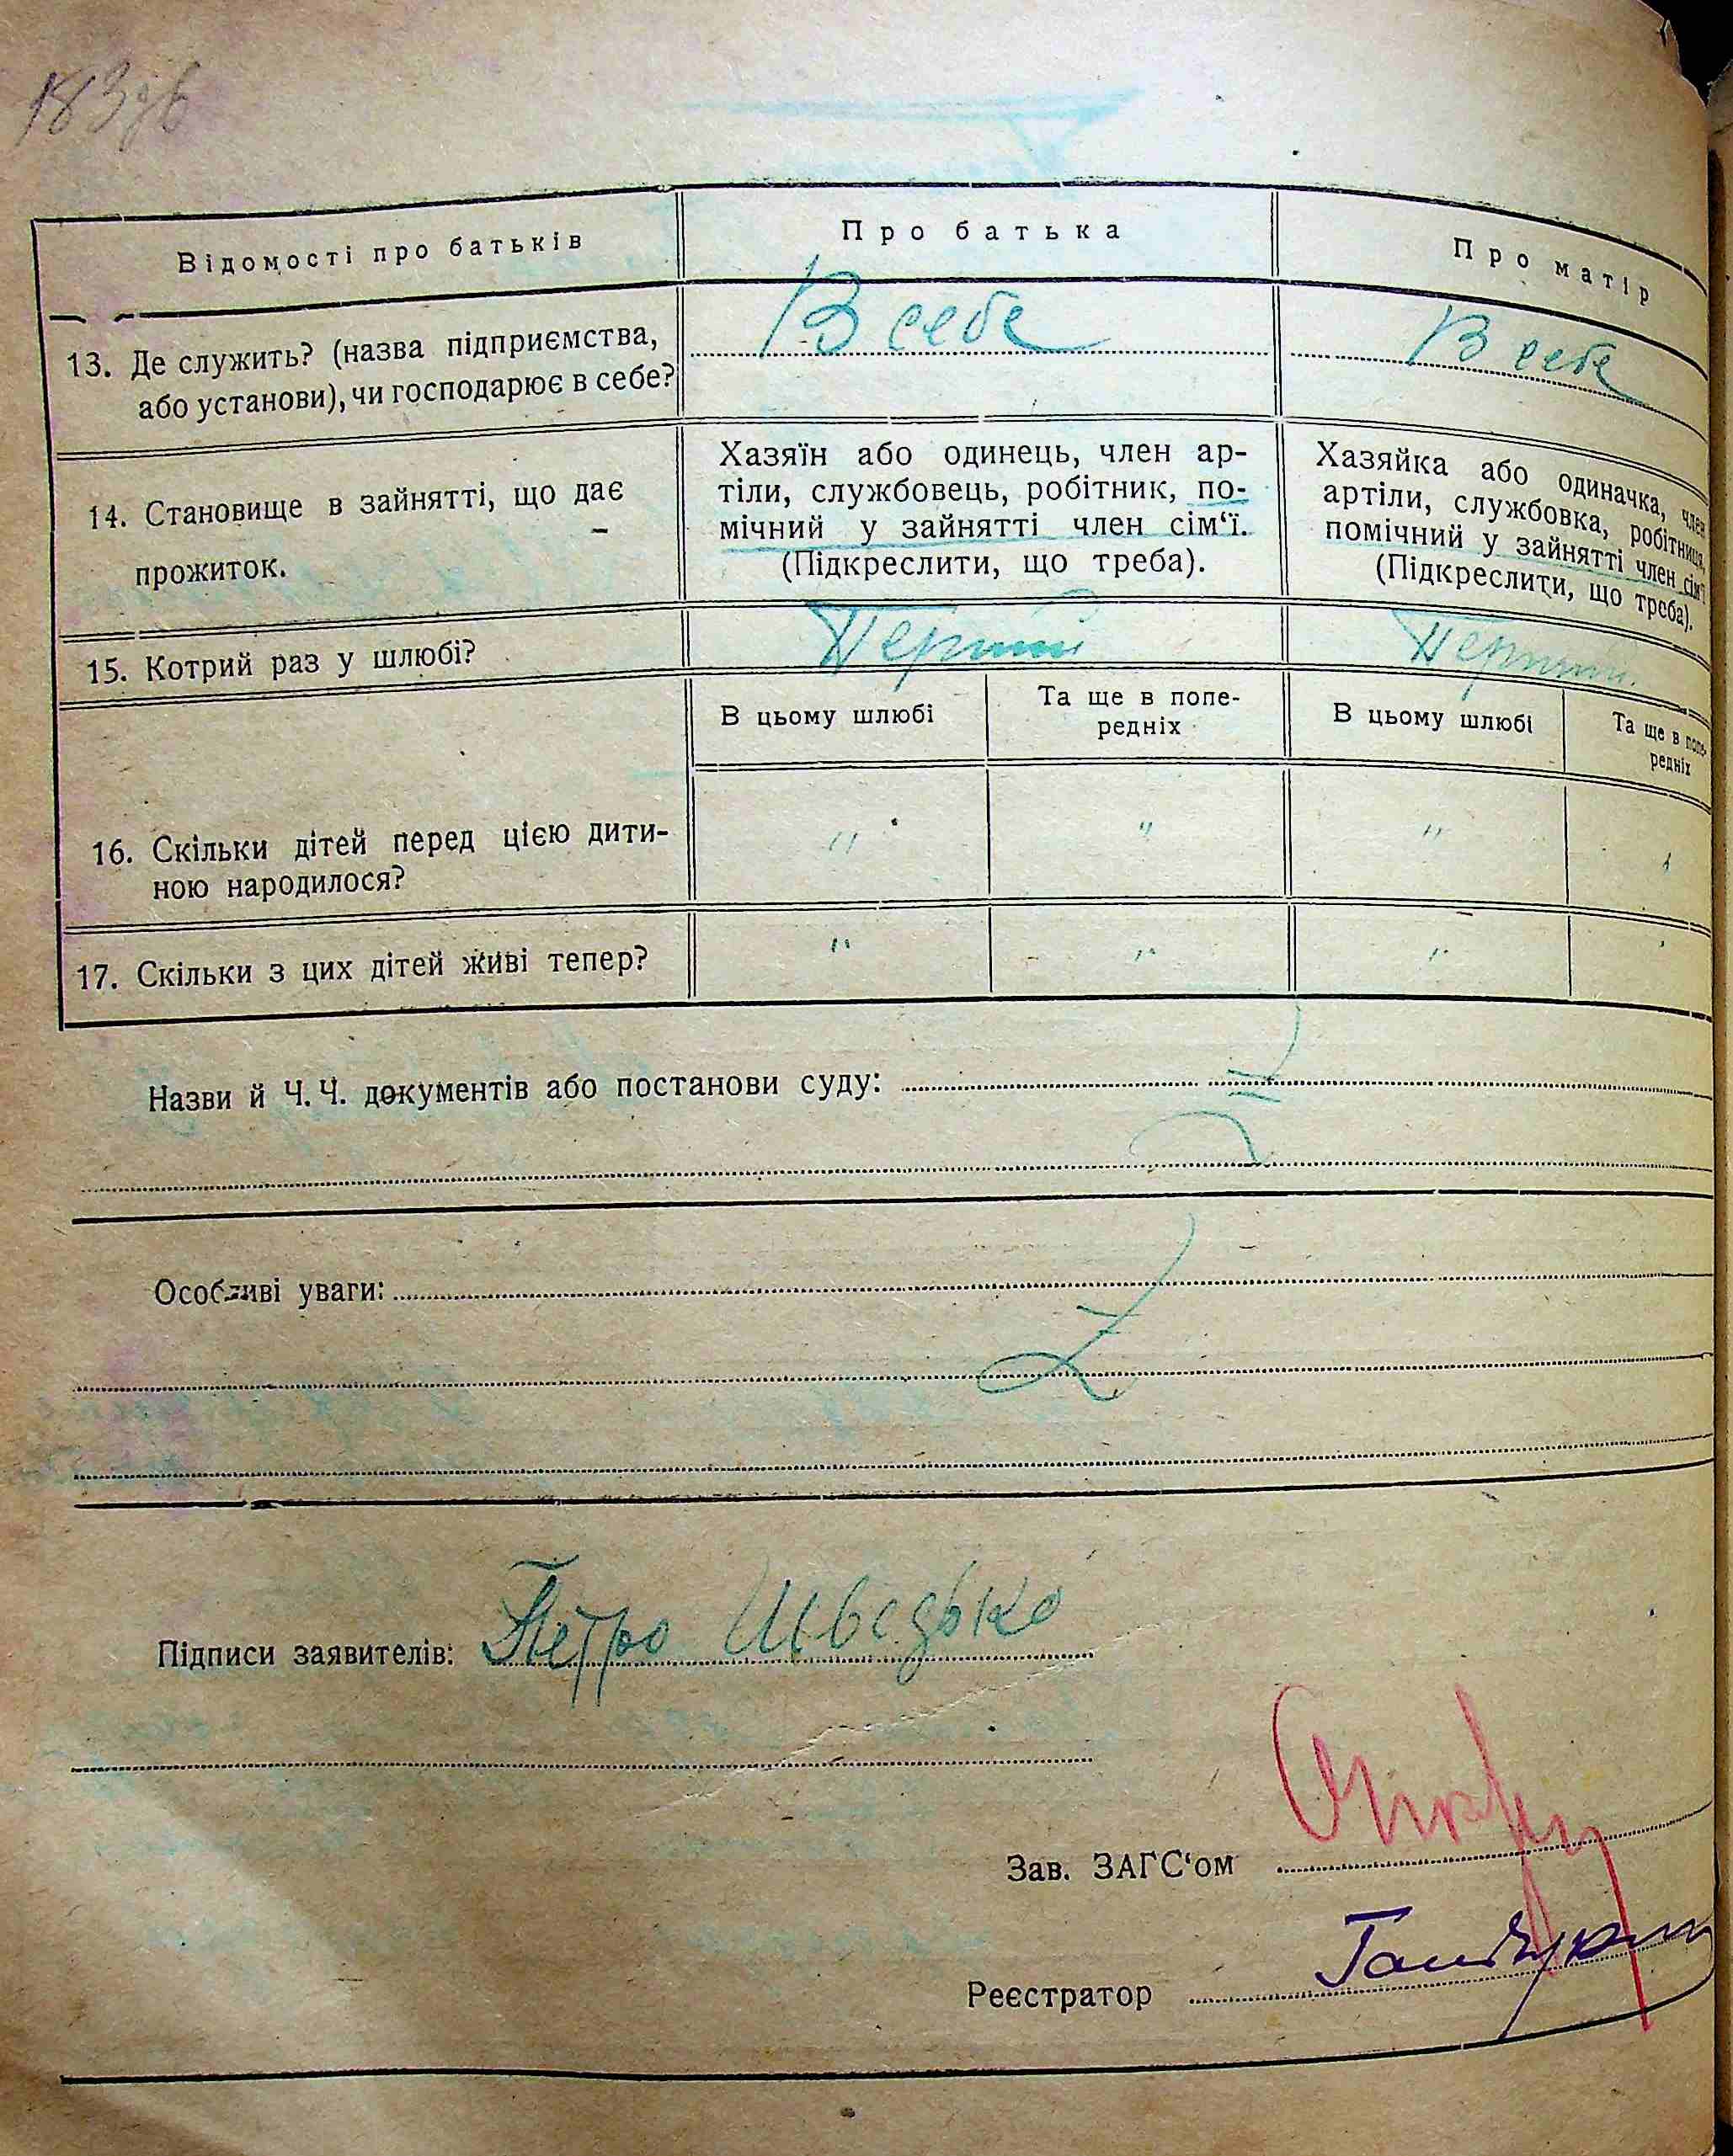 183зб
Відомості про батьків
Про батька
Про матір
13. Де служить? (назва підприємства,
або установи), чи господарює в себе?
В себе
В себе
14. Становище в зайнятті, що дає
прожиток.
Хазяїн або одинець, член ар-
тіли, службовець, робітник, по-
мічний у зайнятті член сім‘ї.
(Підкреслити, що треба).
Хазяйка або одиначка, член
артіли, службовка, робітниця,
помічний у зайнятті член сім‘ї
(Підкреслити, що треба).
15. Котрий раз у шлюбі?
Перший
Перший.
В цьому шлюбі
Та ще в попе-
редніх
В цьому шлюбі
Та ще в попе-
редніх
16. Скільки дітей перед цією дити-
ною народилося?
" " "
17. Скільки з цих дітей живі тепер?
" " "
Назви й Ч. Ч. документів або постанови суду:
Особливі уваги:
Підписи заявителів: Петро Шведько
Зав. ЗАГС‘ом
Реєстратор